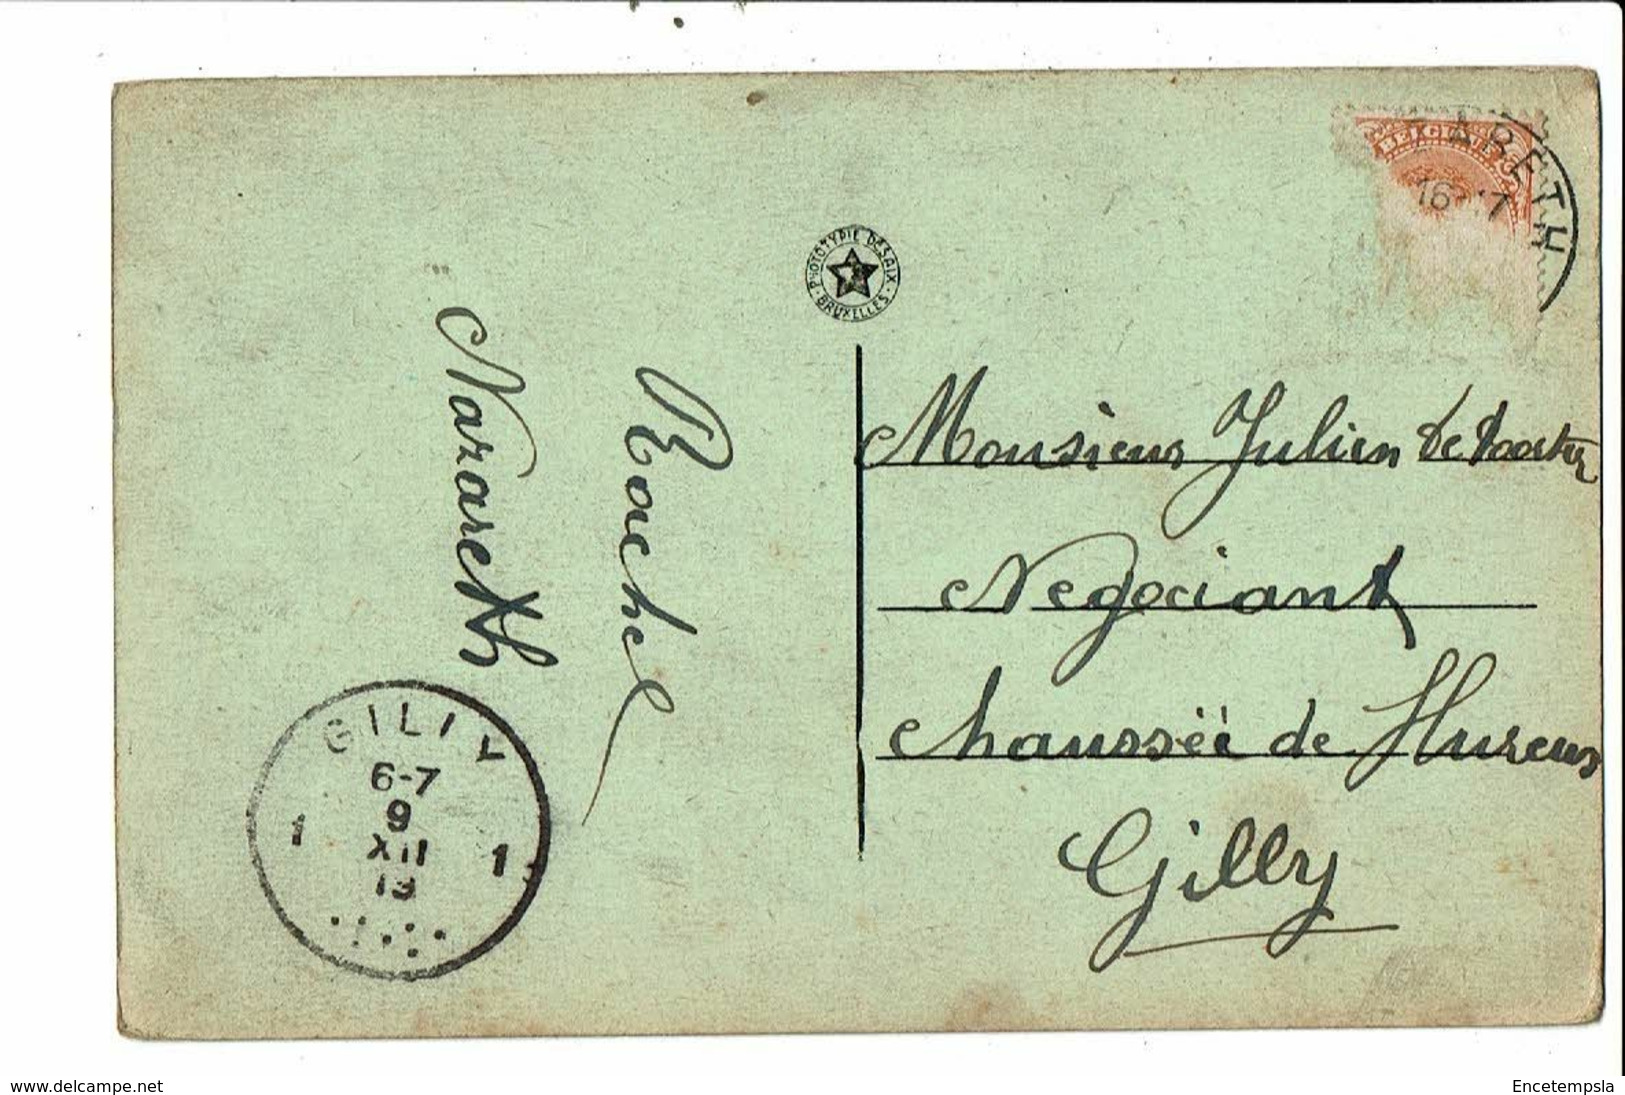 BELGIQUE
ARETH
16-17
PHOTOTYPIE DESAIX
BRUXELLES
Nazareth
Rachel
Monsieur Julien de
Negociant
chaussée de
Gilly
GILLY
6-7
9
XII
13
1 1
www.delcampe.net
Encetempsla